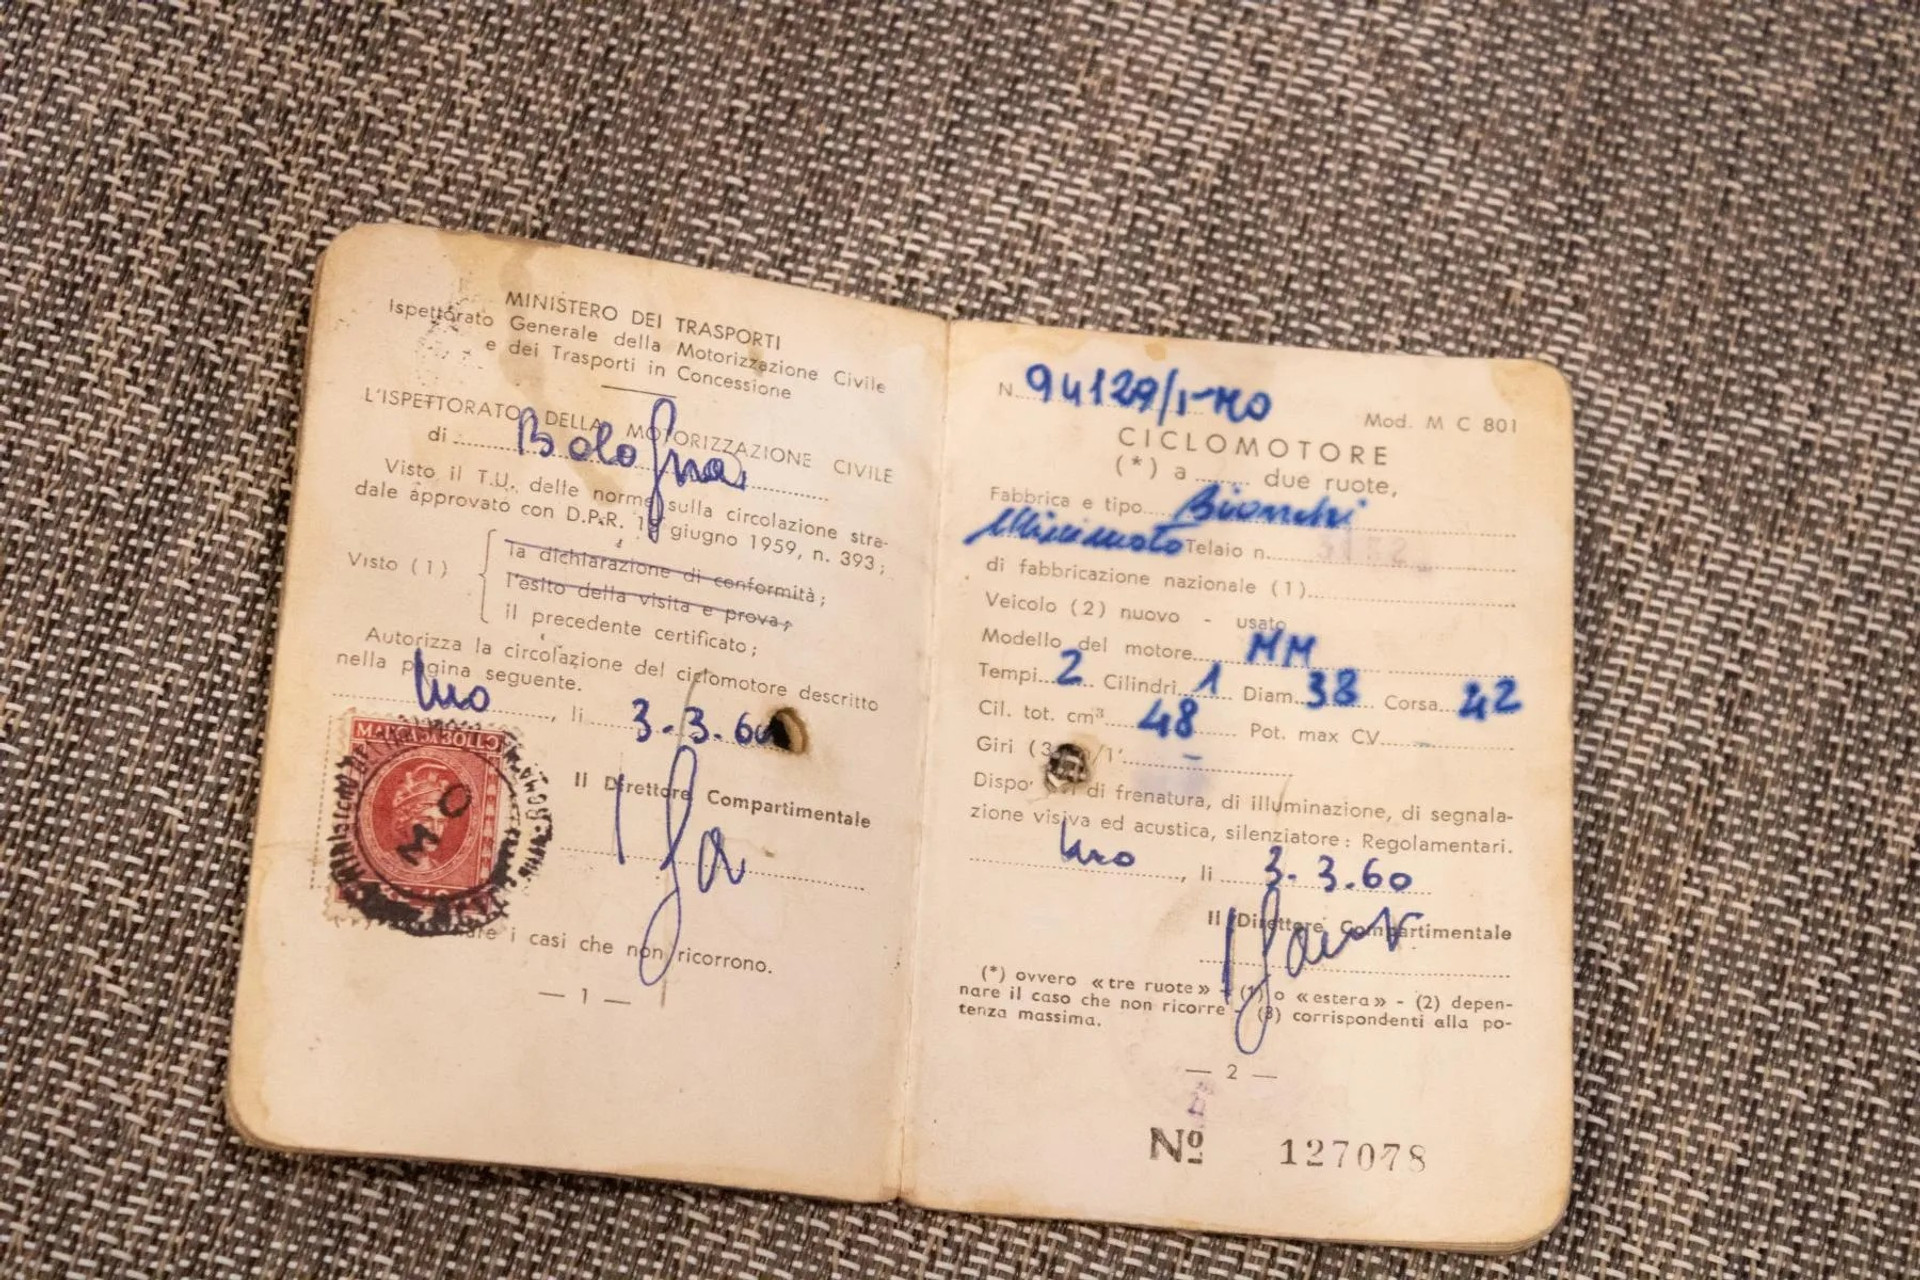 MINISTERO DEI TRASPORTI
Ispettorato Generale della Motorizzazione Civile
e dei Trasporti in Concessione
L'ISPETTORATO DELLA MOTORIZZAZIONE CIVILE
di Bologna
Visto il T.U. delle norme sulla circolazione stra-
dale approvato con D.P.R. 15 giugno 1959, n. 393;
la dichiarazione di conformità;
Visto (1) l'esito della visita e prova;
il precedente certificato;
Autorizza la circolazione del ciclomotore descritto
nella pagina seguente.
, lì 3.3.60
MARCA DA BOLLO
MO
Il Direttore Compartimentale
i casi che non ricorrono.
— 1 —
N. 94129/1-MO
Mod. M C 801
CICLOMOTORE
(*) a ....... due ruote,
Fabbrica e tipo Bianchi
Minimoto Telaio n.
di fabbricazione nazionale (1)
Veicolo (2) nuovo - usato
Modello del motore MM
Tempi 2 Cilindri 1 Diam. 38 Corsa 42
Cil. tot. cm³ 48 Pot. max CV
Giri (3) /1'
di frenatura, di illuminazione, di segnala-
zione visiva ed acustica, silenziatore: Regolamentari.
, lì 3.3.60
Il Direttore Compartimentale
(*) ovvero « tre ruote » - (1) o « estera » - (2) depen-
nare il caso che non ricorre - (3) corrispondenti alla po-
tenza massima.
— 2 —
Nº 127078